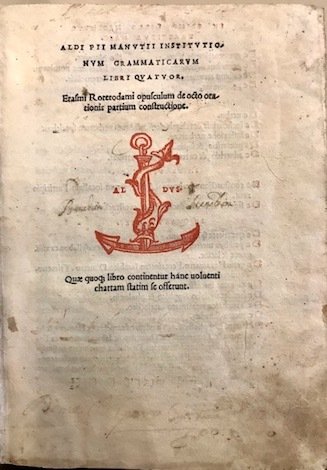 ALDI PII MANVTII INSTITVTIO-
NVM GRAMMATICARVM
LIBRI QVATVOR.
Erasmi Roterodami opusculum de octo ora-
tionis partium constructione.
AL DVS
Quæ quoq; libro continentur hanc uoluenti
chartam statim se offerunt.